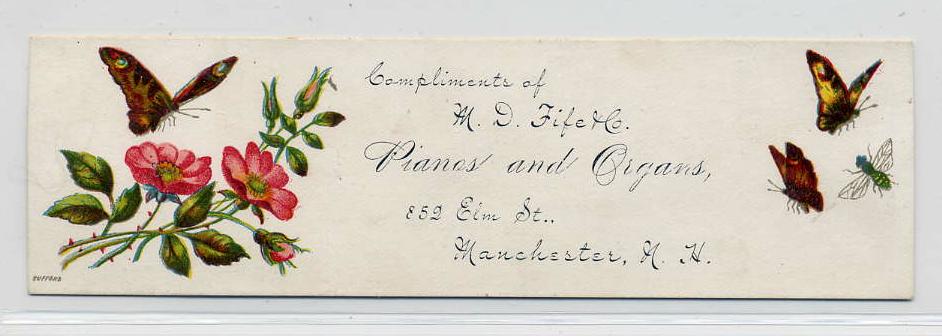 Compliments of
M. D. Fife & Co.
Pianos and Organs,
852 Elm St..
Manchester, N. H.
BUFFORD